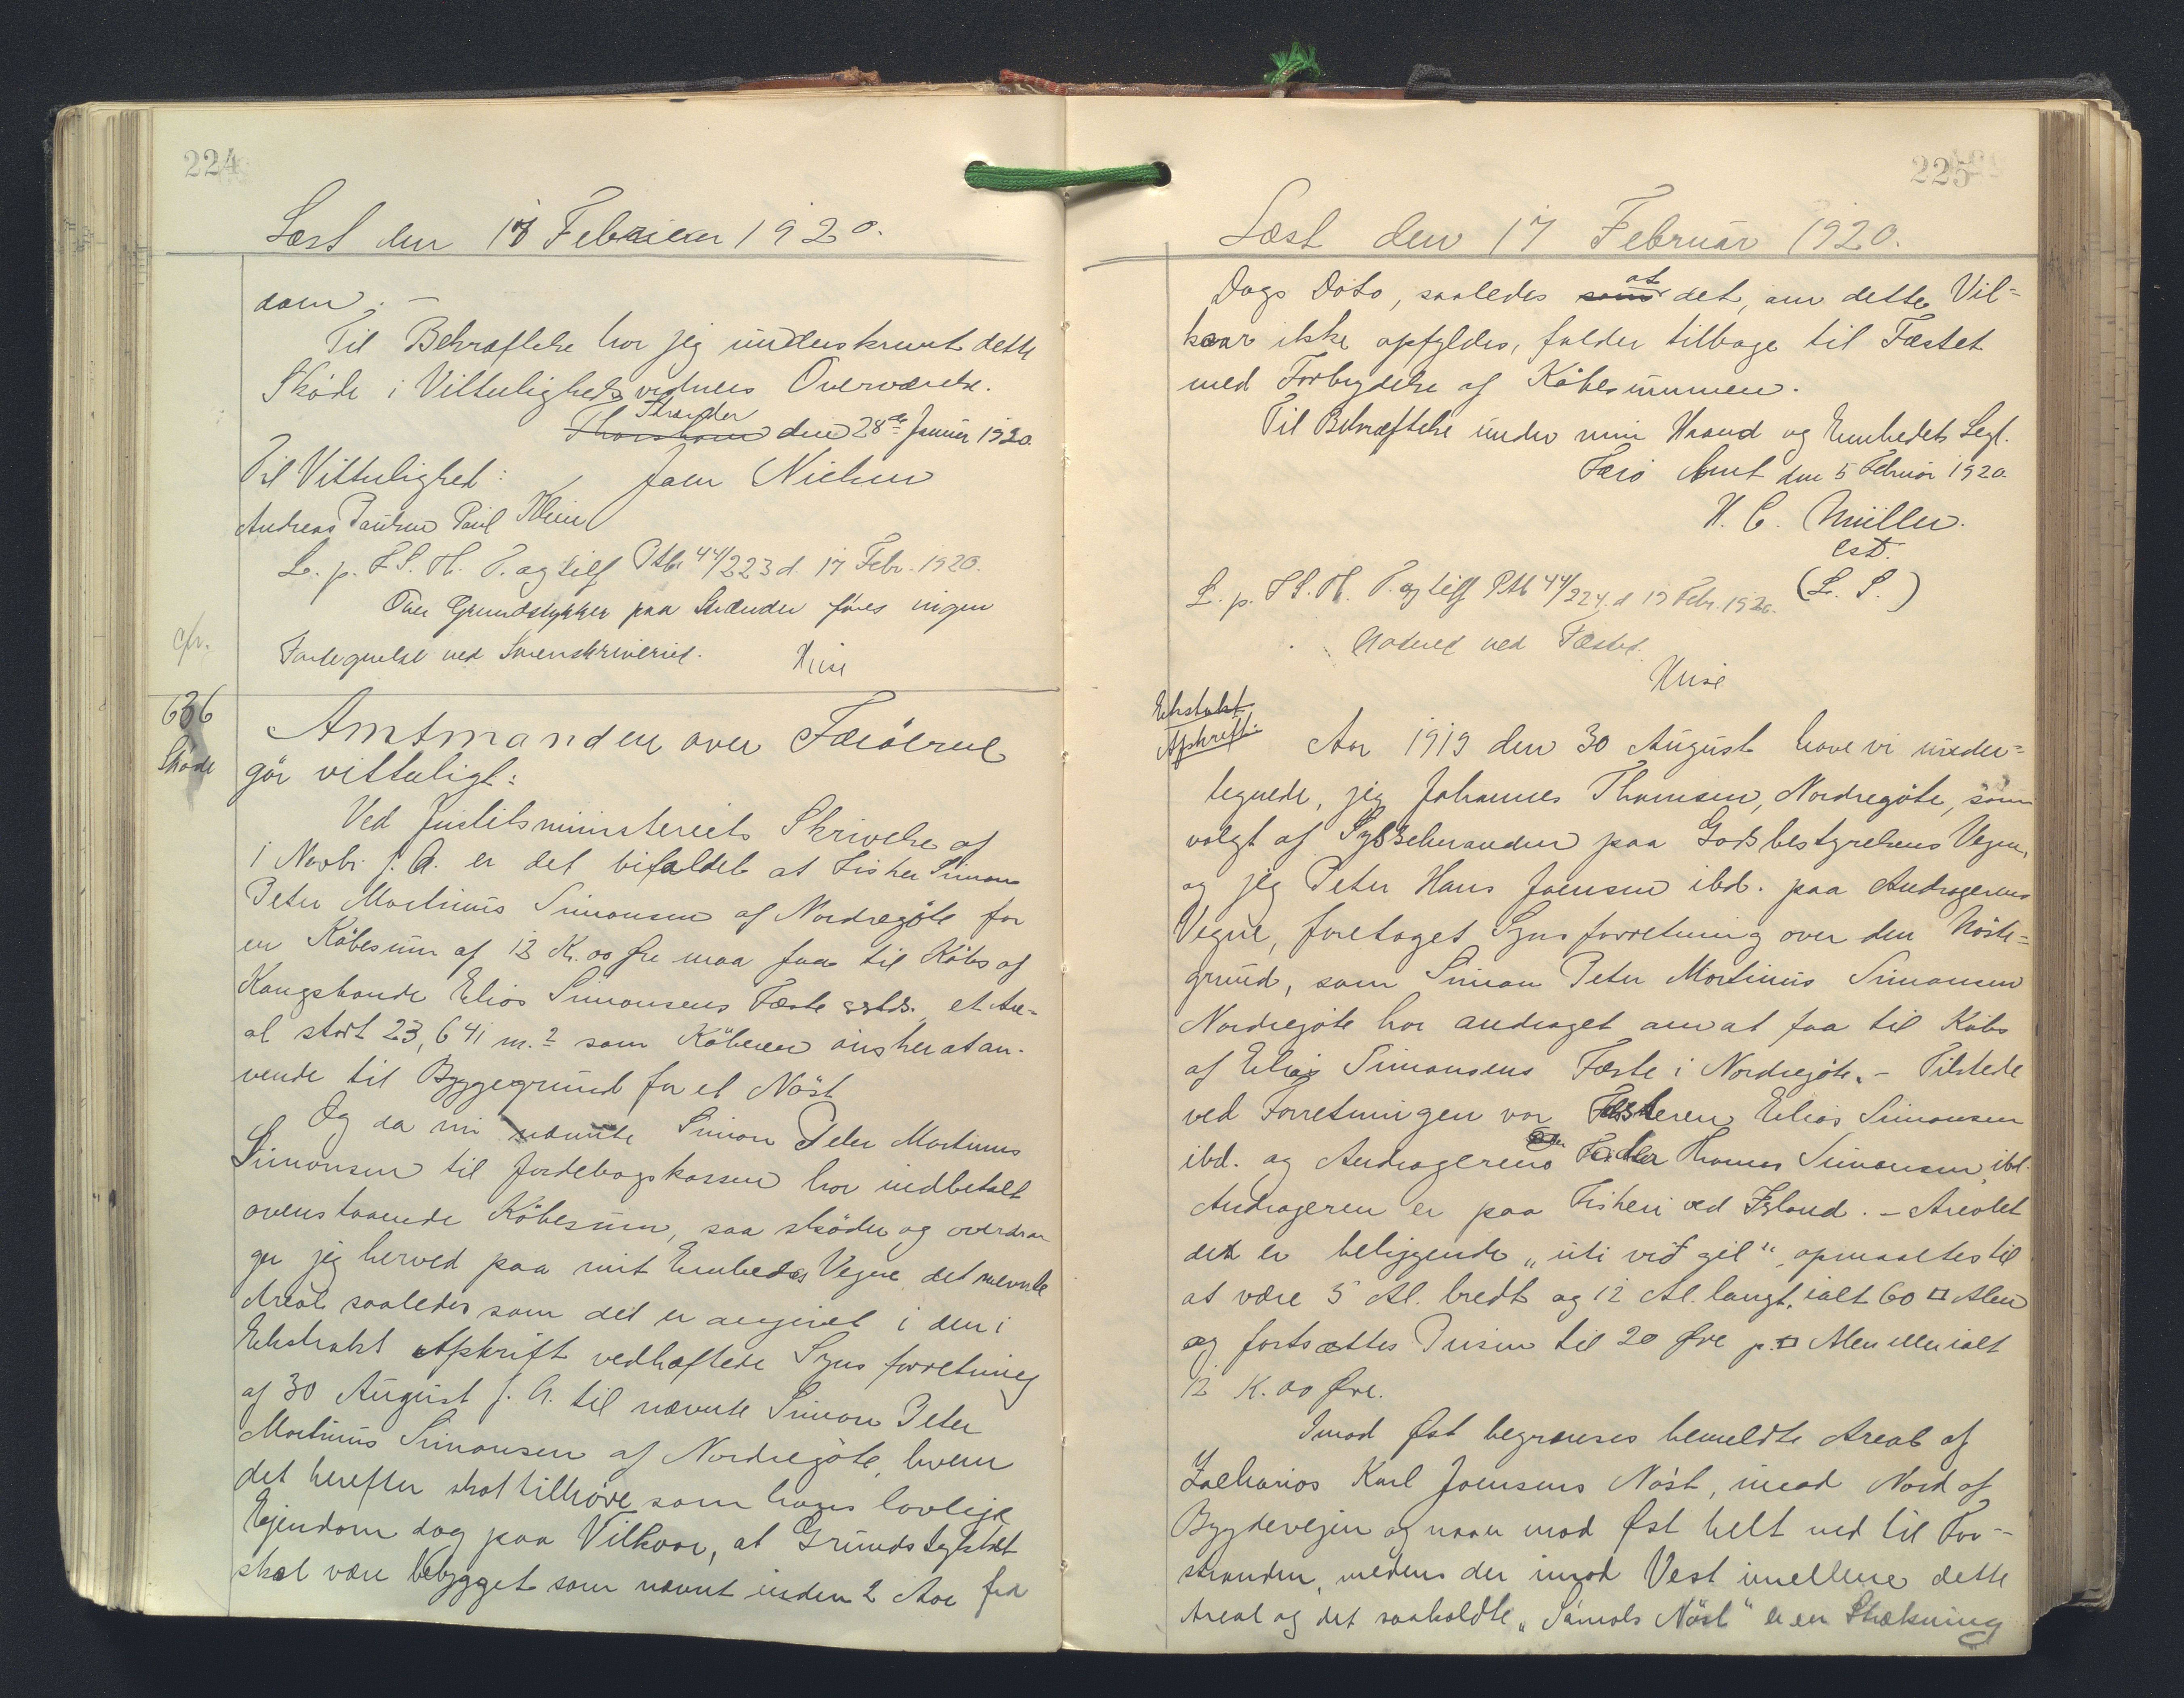 224
Læst den 17 Februar 1920.
dom. –
Til Bekræftelse har jeg underskrevet dette
Skøde i Vitterlighedsvidners Overværelse.
Strænder
Thorshavn den 28de Januar 1920
Til Vitterlighed: Joen Nielsen
Andreas Paulsen Paul
L. p. F. S. H. T. og tilf Ptb. 44/223 d. 17 Febr. 1920.
Over Grundstykker paa Strænder føres ingen
cfr.
Fortegnelse ved Sorenskriveriet.
636
Skøde
Amtmanden over Færöerne
gör vitterligt:
Ved Justitsministeriets Skrivelse af
1 Novbr. f. A. er det bifaldet at Fisker Simon
Peter Mortinus Simonsen af Nordregöte for
en Köbesum af 12 Kr. 00 Øre maa faa til Köbs af
Kongsbonde Elias Simonsens Fæste smstds. et Are-
al stort 23,641 m.2 som Köberen önsker at an-
vende til Byggegrund for et Nöst
Og da nu nævnte Simon Peter Mortinus
Simonsen til Jordebogskassen har indbetalt
ovenstaaende Köbesum, saa sköder og overdra-
ger jeg herved paa mit Embedes Vegne det nævnte
Areal saaledes som det er angivet i den i
Ekstrakt Afskrift vedhæftede Synsforretning
af 30 August f. A. til nævnte Simon Peter
Mortinus Simonsen af Nordregöte, hvem
det herefter skal tilhöre som hans lovlige
Ejendom dog paa Vilkaar, at Grundstykket
skal være bebygget som nævnt inden 2 Aar fra
225
Læst den 17 Februar 1920.
Dags Dato, saaledes som at det, om dette Vil-
kaar ikke opfyldes, falder tilbage til Fæstet
med Forbrydelse af Köbesummen.
Til Bekræftelse under min Haand og Embedets Segl.
Færö Amt den 5 Februar 1920
H. C. Müller.
cst.
(L. S.)
L. p. F. S. H. T. og tilf Ptb 44/224 d 17 Febr. 1920.
Noteret ved Fæstet.
Ekstrakt
Afskrift.
Aar 1919 den 30 August have vi under-
tegnede, jeg Johannes Thomsen, Nordregöte, som
valgt af Sysselmanden paa Godsbestyrelsens Vegne,
og jeg Peter Hans Joensen ibd. paa Andragerens
Vegne, foretaget Synsforretning over den Nöste-
grund, som Simon Peter Mortinus Simonsen
Nordregöte har andraget om at faa til Köbs
af Elias Simonsens Fæste i Nordregöte. – Tilstede
ved Forretningen var Fæsteren Elias Simonsen
ibd. og Andragerens Fader Thomas Simonsen, ibd.
Andrageren er paa Fiskeri ved Island. – Arealet
der er beliggende „úti við gil“, opmaaltes til
at være 5 Al. bredt og 12 Al. langt, ialt 60 □ Alen
og fortsættes Prisen til 20 Øre p. □ Alen eller ialt
12 K. 00 Øre.
Imod Øst begrænses bemeldte Areal af
Zacharias Karl Joensens Nöst, imod Nord af
Bygdevejen og naar mod Øst helt ned til For-
stranden, medens der imod Vest imellem dette
Areal og det saakaldte „Sámals Nöst“ er en Strækning